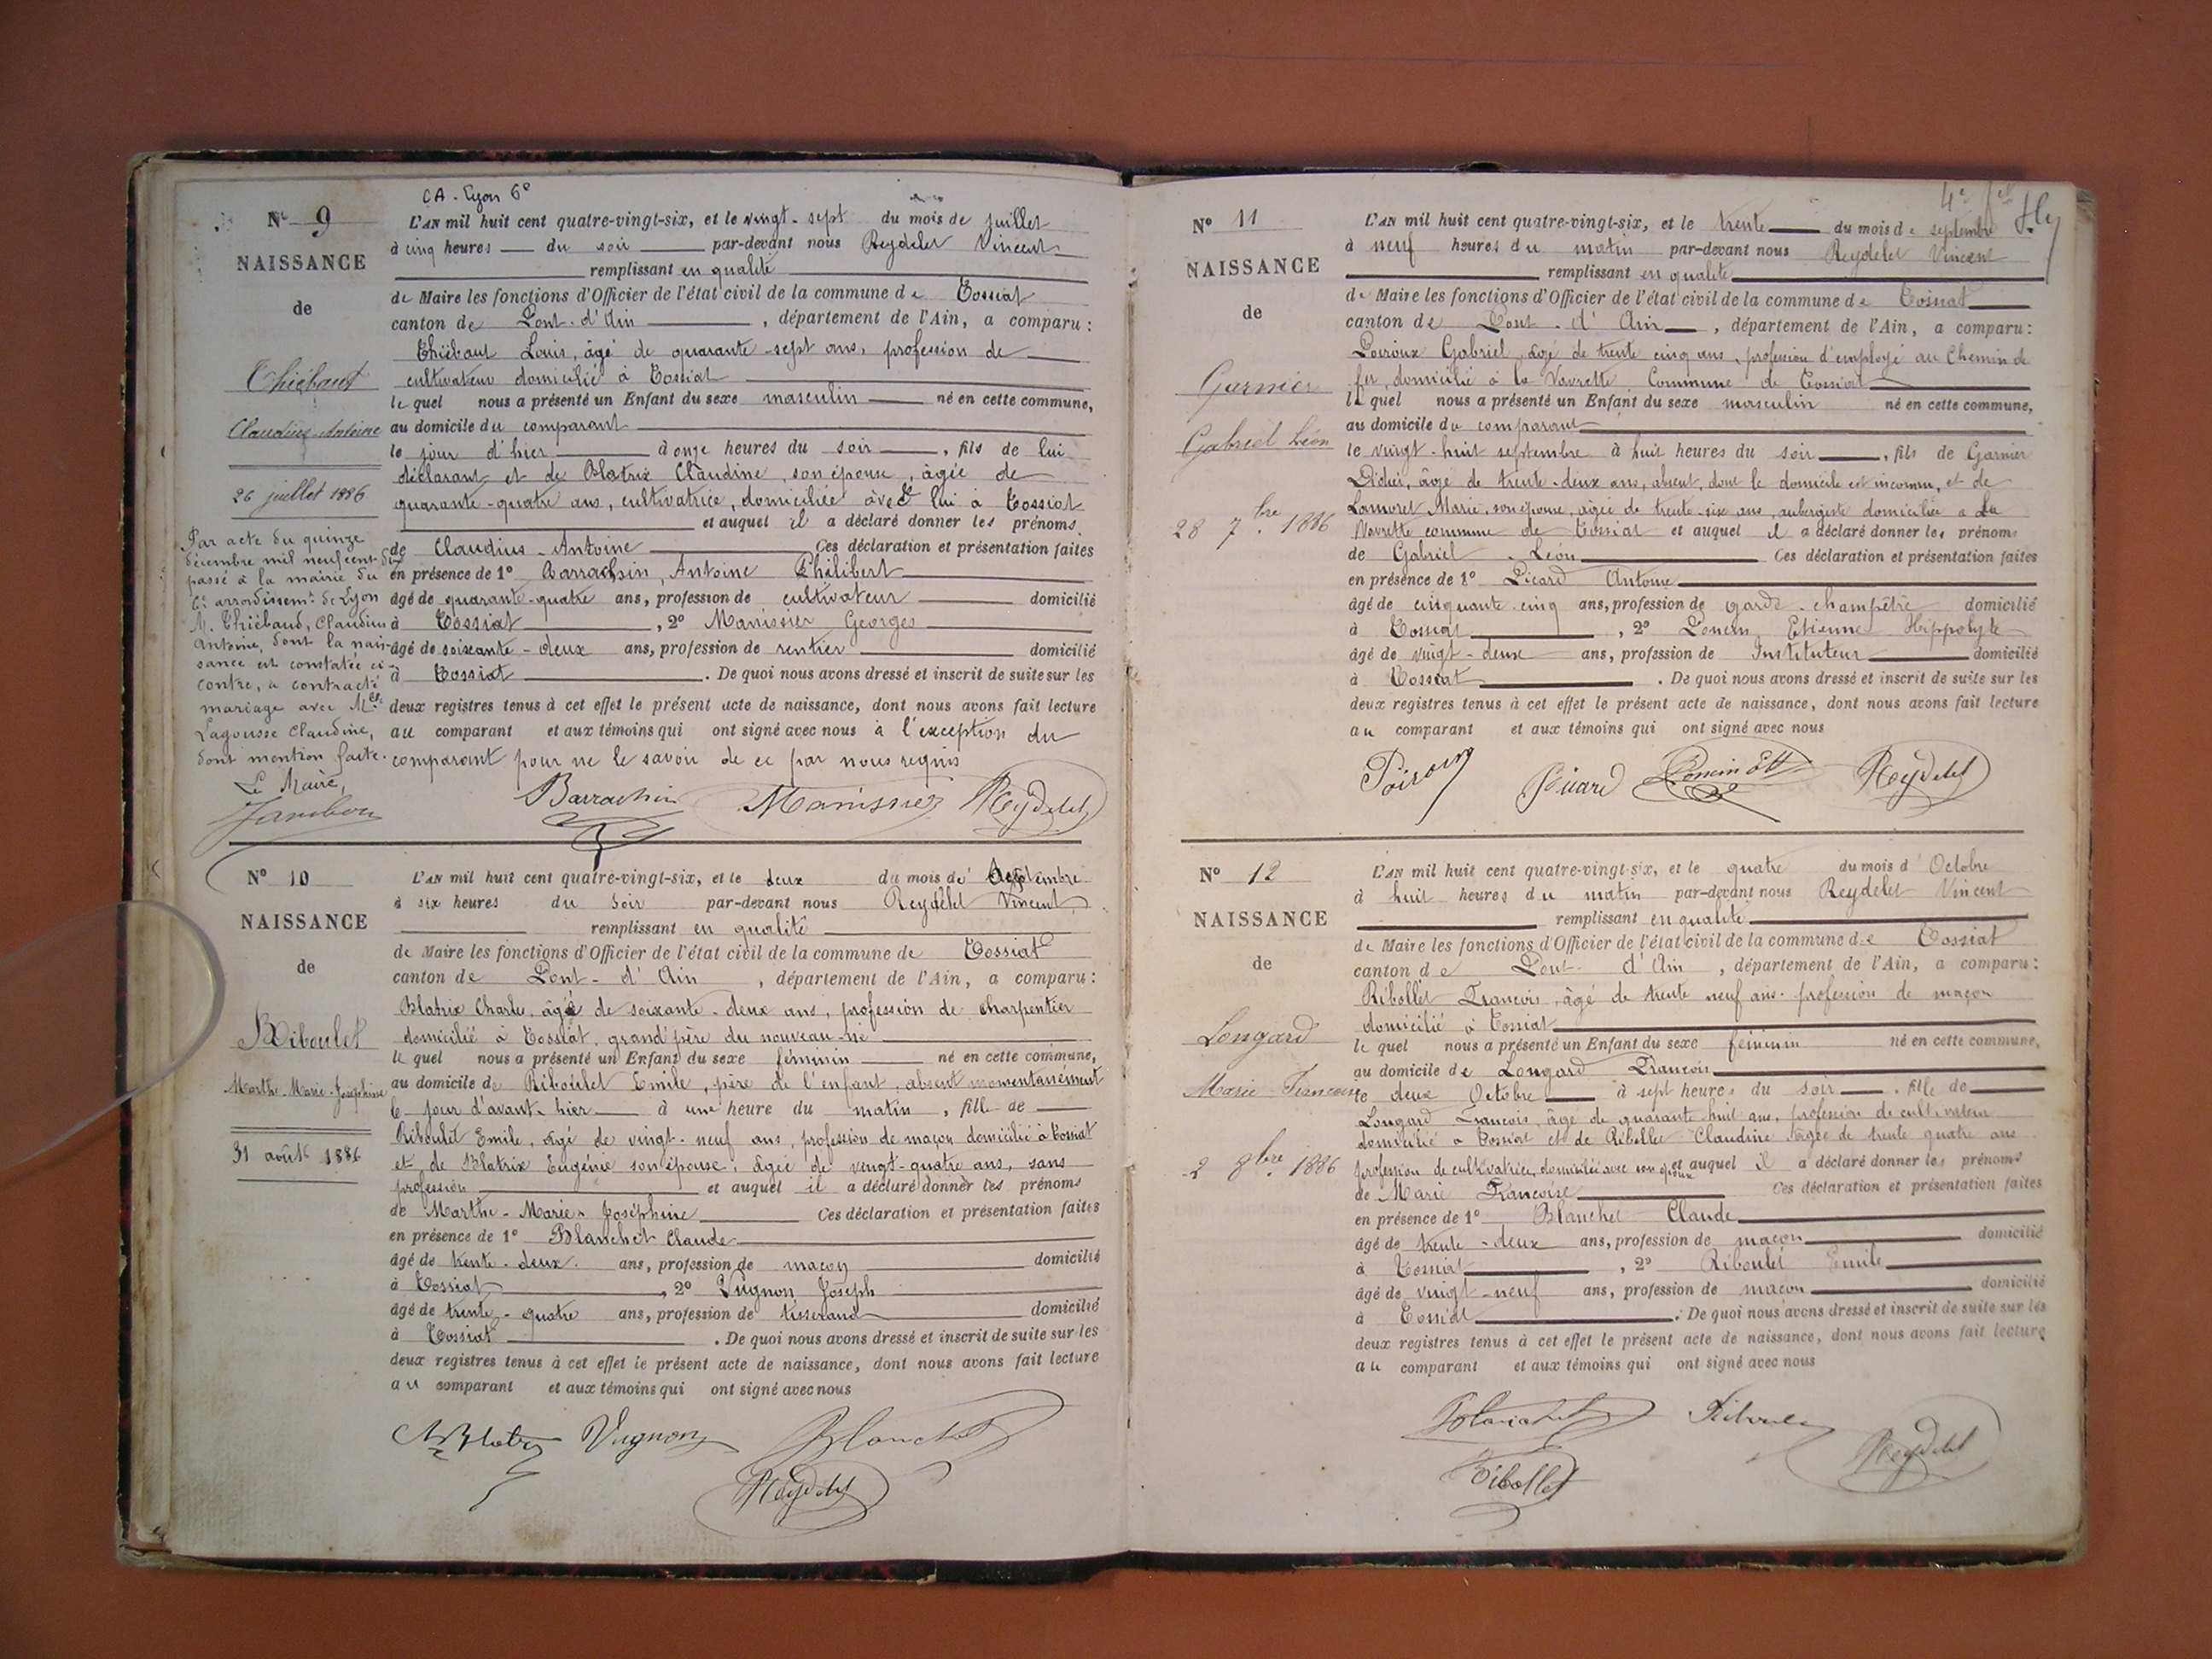 CA - Lyon 6e
N° 9
NAISSANCE
de
Thiébaut
Claudius-Antoine
26 juillet 1886
Par acte du quinze
décembre mil neuf cent dix
passé à la mairie du
6e arrondissemt de Lyon
M. Thiébaud, Claudius
Antoine, dont la nais-
sance est constatée ci-
contre, a contracté
mariage avec Mlle
Lagousse Claudine,
dont mention faite.
Le Maire,
Jambon
L'AN mil huit cent quatre-vingt-six, et le vingt-sept du mois de juillet
à cinq heures du soir par-devant nous Reydelet Vincent
remplissant en qualité
de Maire les fonctions d'Officier de l'état civil de la commune de Tossiat
canton de Pont-d'Ain, département de l'Ain, a comparu:
Thiébaut Louis, âgé de quarante-sept ans, profession de
cultivateur domicilié à Tossiat
le quel nous a présenté un Enfant du sexe masculin né en cette commune,
au domicile du comparant
le jour d'hier à onze heures du soir, fils de lui
déclarant et de Blatrix Claudine, son épouse, âgée de
quarante-quatre ans, cultivatrice, domiciliée avec lui à Tossiat
et auquel il a déclaré donner les prénoms
de Claudius-Antoine Ces déclaration et présentation faites
en présence de 1° Barrachin, Antoine Philibert
âgé de quarante-quatre ans, profession de cultivateur domicilié
à Tossiat, 2° Manissier Georges
âgé de soixante-deux ans, profession de rentier domicilié
à Tossiat. De quoi nous avons dressé et inscrit de suite sur les
deux registres tenus à cet effet le présent acte de naissance, dont nous avons fait lecture
au comparant et aux témoins qui ont signé avec nous à l'exception du
comparant pour ne le savoir de ce par nous requis
Barrachin Manissier Reydelet
N° 10
NAISSANCE
de
Riboulet
Marthe-Marie-Joséphine
31 août 1886
L'AN mil huit cent quatre-vingt-six, et le deux du mois de Septembre
à six heures du soir par-devant nous Reydelet Vincent
remplissant en qualité
de Maire les fonctions d'Officier de l'état civil de la commune de Tossiat
canton de Pont-d'Ain, département de l'Ain, a comparu:
Blatrix Charle, âgé de soixante-deux ans, profession de charpentier
domicilié à Tossiat, grand'père du nouveau-né
le quel nous a présenté un Enfant du sexe féminin né en cette commune,
au domicile de Riboulet Emile, père de l'enfant, absent momentanément
le jour d'avant-hier à une heure du matin, fille de
Riboulet Emile, âgé de vingt-neuf ans, profession de maçon domicilié à Tossiat
et de Blatrix Eugénie son épouse, âgée de vingt-quatre ans, sans
profession et auquel il a déclaré donner les prénoms
de Marthe-Marie-Joséphine Ces déclaration et présentation faites
en présence de 1° Blanchet Claude
âgé de trente-deux ans, profession de maçon domicilié
à Tossiat, 2° Vugnon Joseph
âgé de trente-quatre ans, profession de tisserand domicilié
à Tossiat. De quoi nous avons dressé et inscrit de suite sur les
deux registres tenus à cet effet le présent acte de naissance, dont nous avons fait lecture
au comparant et aux témoins qui ont signé avec nous
Blatrix Vugnon Blanchet
Reydelet
4e
N° 11
NAISSANCE
de
Garnier
Gabriel Léon
28 7bre 1886
L'AN mil huit cent quatre-vingt-six, et le trente du mois de septembre
à neuf heures du matin par-devant nous Reydelet Vincent
remplissant en qualité
de Maire les fonctions d'Officier de l'état civil de la commune de Tossiat
canton de Pont-d'Ain, département de l'Ain, a comparu:
Poiroux Gabriel, âgé de trente cinq ans, profession d'employé au Chemin de
fer, domicilié à la Vavrette Commune de Tossiat
le quel nous a présenté un Enfant du sexe masculin né en cette commune,
au domicile du comparant
le vingt-huit septembre à huit heures du soir, fils de Garnier
Didier, âgé de trente-deux ans, absent, dont le domicile est inconnu, et de
Lamoret Marie, son épouse, âgée de trente-six ans, aubergiste domiciliée à La
Vavrette commune de Tossiat et auquel il a déclaré donner les prénoms
de Gabriel-Léon Ces déclaration et présentation faites
en présence de 1° Picard Antoine
âgé de cinquante-cinq ans, profession de garde-champêtre domicilié
à Tossiat, 2° Etienne Hippolyte
âgé de vingt-deux ans, profession de Instituteur domicilié
à Tossiat. De quoi nous avons dressé et inscrit de suite sur les
deux registres tenus à cet effet le présent acte de naissance, dont nous avons fait lecture
au comparant et aux témoins qui ont signé avec nous
Picard Reydelet
N° 12
NAISSANCE
de
Longard
Marie Francoise
2 8bre 1886
L'AN mil huit cent quatre-vingt-six, et le quatre du mois d'Octobre
à huit heures du matin par-devant nous Reydelet Vincent
remplissant en qualité
de Maire les fonctions d'Officier de l'état civil de la commune de Tossiat
canton de Pont-d'Ain, département de l'Ain, a comparu:
Ribollet Francois, âgé de trente neuf ans, profession de maçon
domicilié à Tossiat
le quel nous a présenté un Enfant du sexe féminin né en cette commune,
au domicile de Longard Francois
le deux Octobre à sept heures du soir, fille de
Longard Francois, âgé de quarante-huit ans, profession de cultivateur
domicilié à Tossiat et de Ribollet Claudine âgée de trente quatre ans
profession de cultivatrice, domiciliée avec son époux et auquel il a déclaré donner les prénoms
de Marie Francoise Ces déclaration et présentation faites
en présence de 1° Blanchet Claude
âgé de trente-deux ans, profession de maçon domicilié
à Tossiat, 2° Riboulet Emile
âgé de vingt-neuf ans, profession de maçon domicilié
à Tossiat. De quoi nous avons dressé et inscrit de suite sur les
deux registres tenus à cet effet le présent acte de naissance, dont nous avons fait lecture
au comparant et aux témoins qui ont signé avec nous
Blanchet Riboulet
Ribollet Reydelet